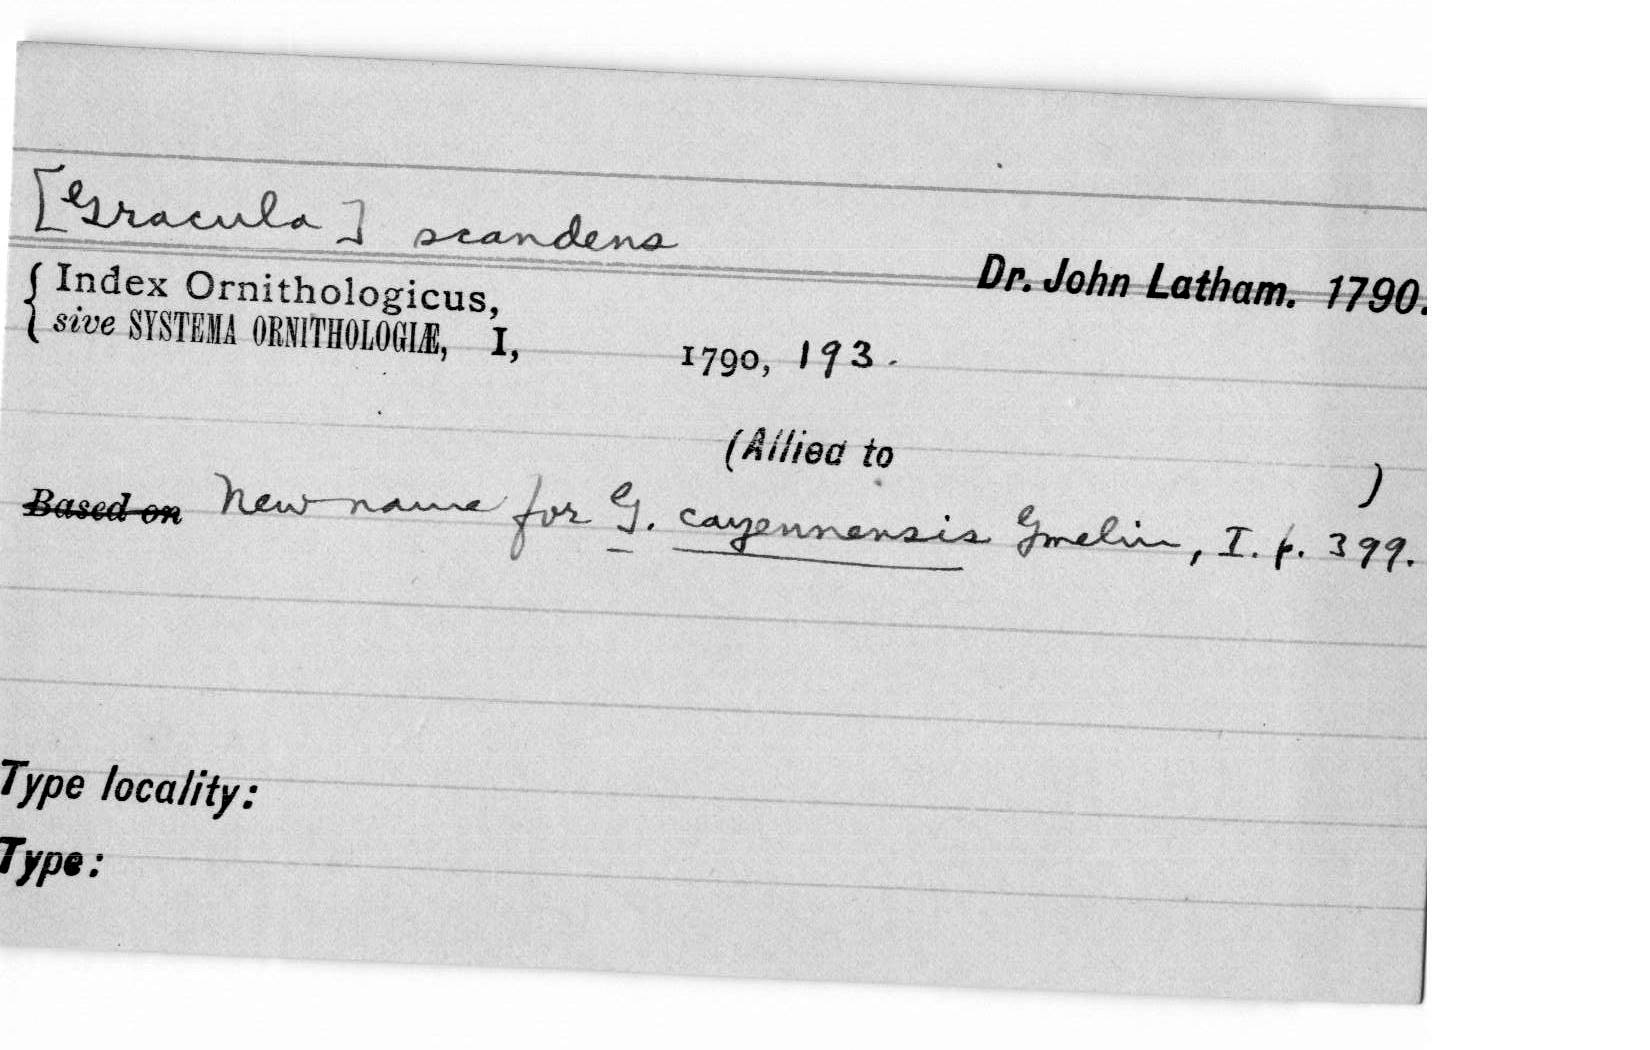 [Gracula] scandens
Dr. John Latham. 1790.
{ Index Ornithologicus,
sive SYSTEMA ORNITHOLOGIÆ, I, 1790, 193.
(Allied to )
Based on New name for G. cayennensis Gmelin, I. p. 399.
Type locality:
Type: